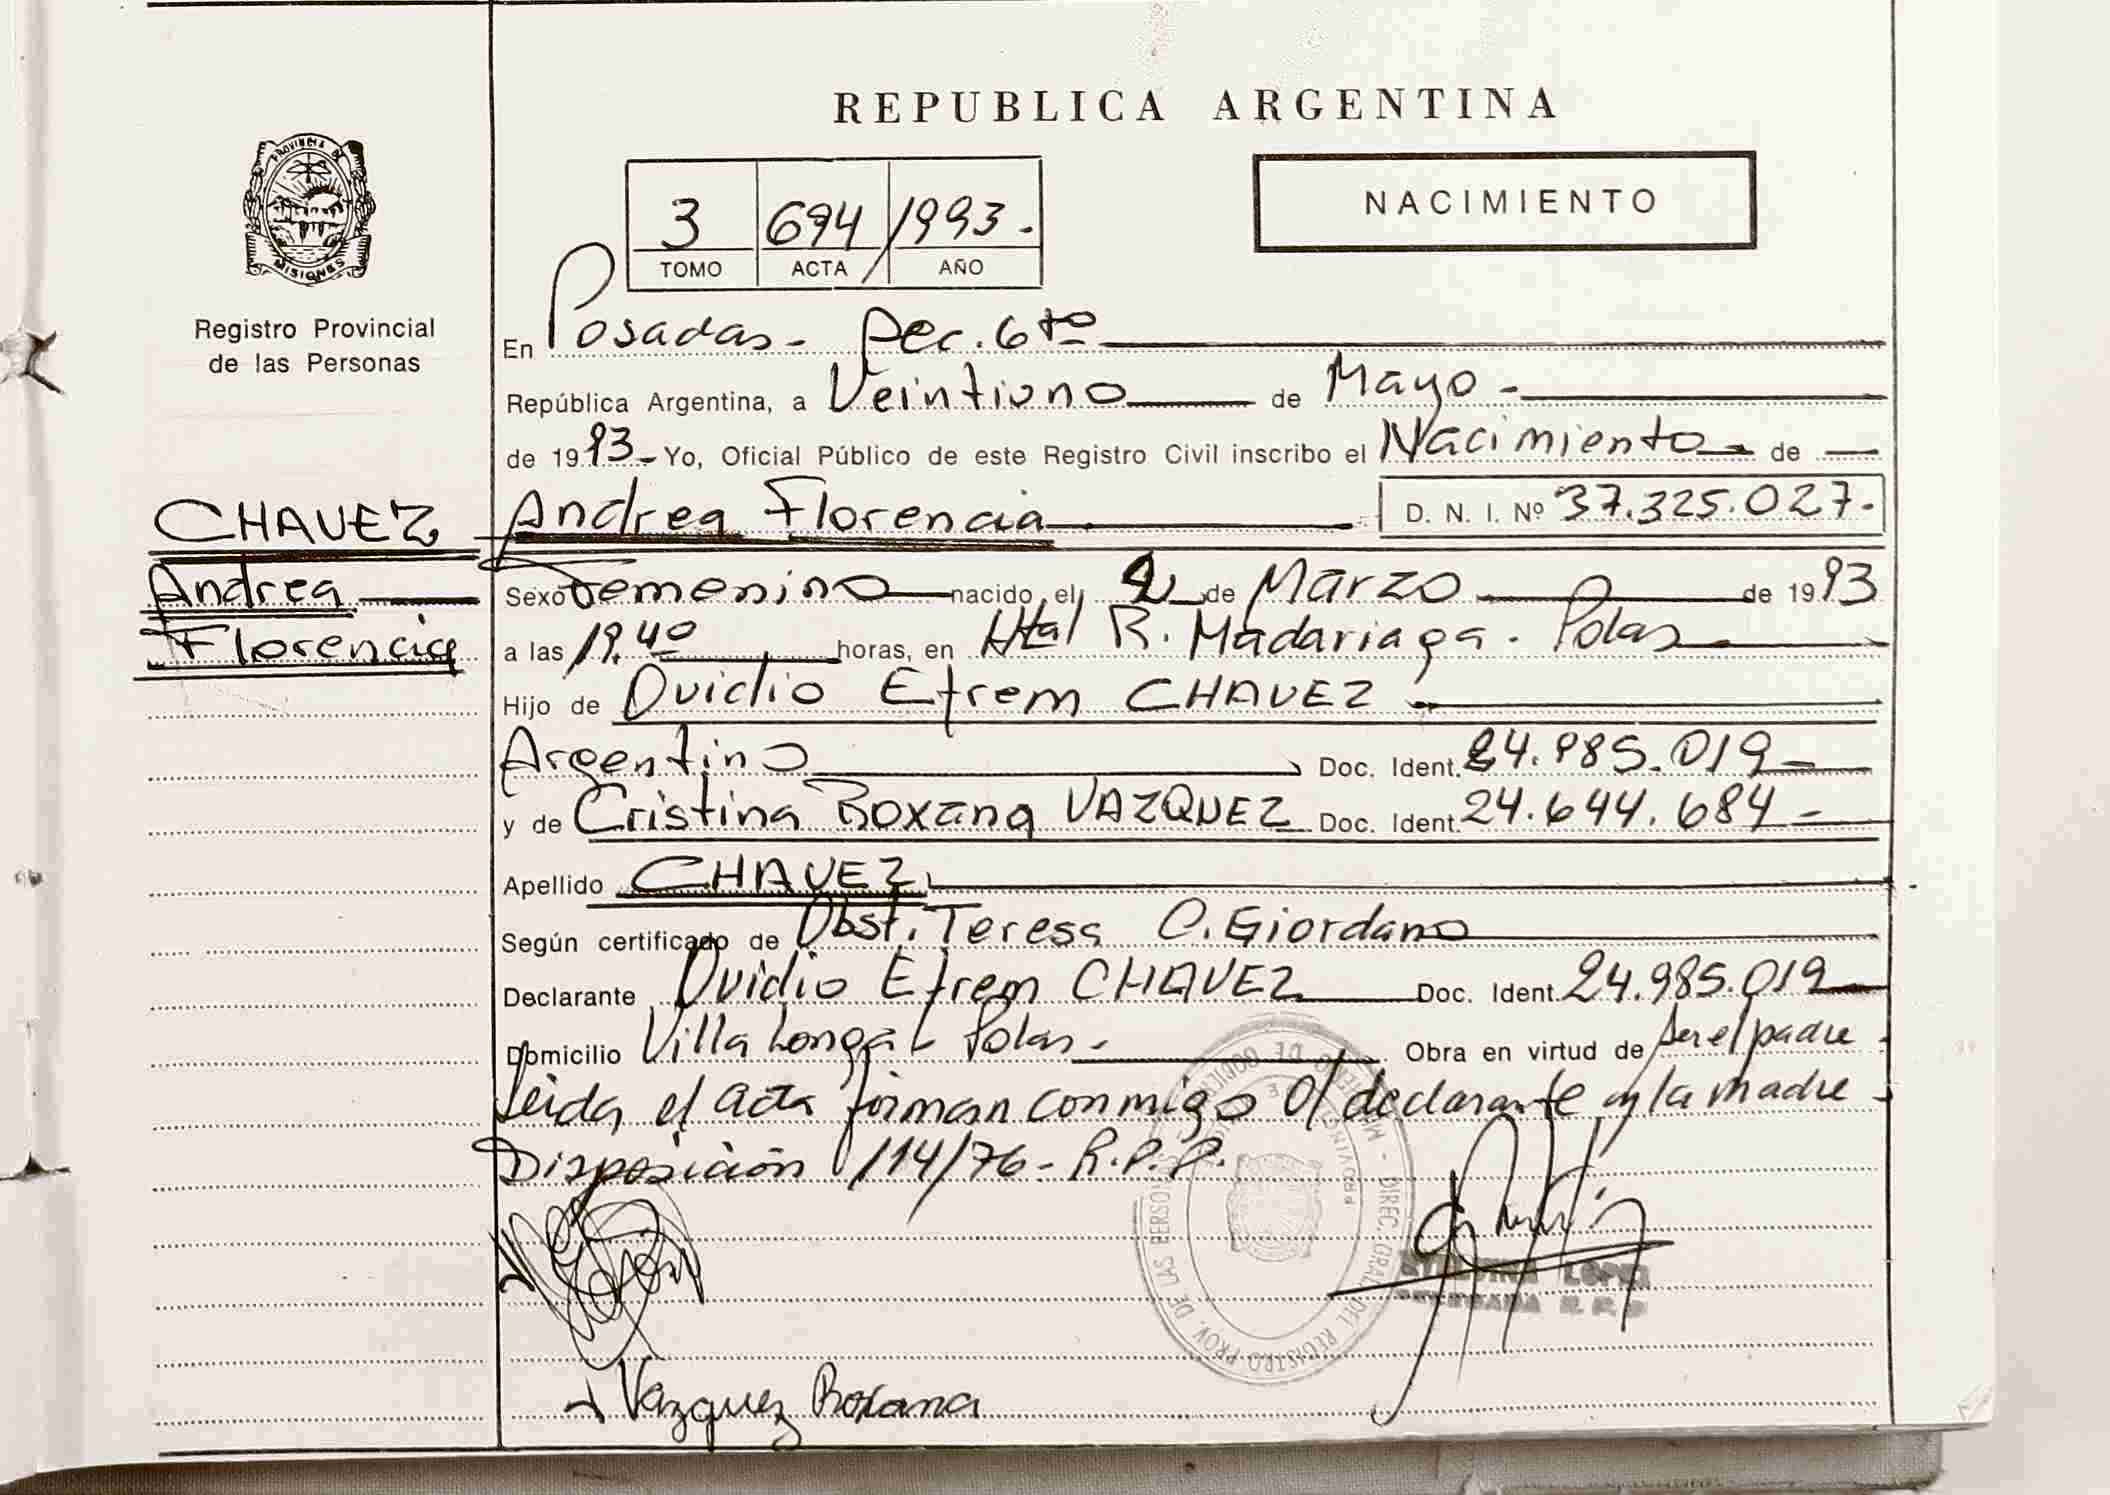 REPUBLICA ARGENTINA
PROVINCIA DE
MISIONES
Registro Provincial
de las Personas
3 694/1993.-
TOMO ACTA AÑO
NACIMIENTO
En Posadas - Sec. 6to
República Argentina, a Veintiuno de Mayo -
de 1993 - Yo, Oficial Público de este Registro Civil inscribo el Nacimiento de
CHAVEZ
Andrea
Florencia
Andrea Florencia D. N. I. Nº 37.325.027.-
Sexo Femenino nacido el de Marzo de 1993
a las 19.40 horas, en Htal R. Madariaga - Pdas
Hijo de Ovidio Efrem CHAVEZ
Argentino Doc. Ident. 24.985.019 -
y de Cristina Roxana VAZQUEZ Doc. Ident. 24.644.684 -
Apellido CHAVEZ
Según certificado de Obst. Teresa O. Giordano
Declarante Ovidio Efrem CHAVEZ Doc. Ident. 24.985.019
Domicilio Villa Longa - Pdas - Obra en virtud de ser el padre -
Leida el acta firman conmigo el declarante y la madre -
Disposición 114/76 - R.P.P.
DIREC. GRAL. DEL REGISTRO PROV. DE LAS PERSONAS
LOPEZ
Vazquez Roxana